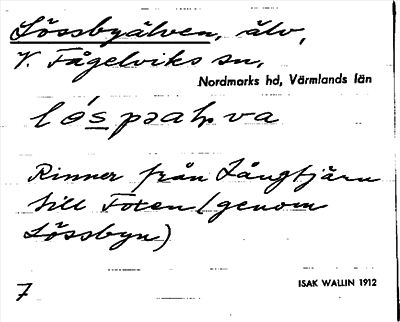 Lössbyälven, älv,
V. Fågelviks sn,
Nordmarks hd, Värmlands län
Rinner från Långtjärn
till Foxen (genom
Lössbyn)
7
ISAK WALLIN 1912